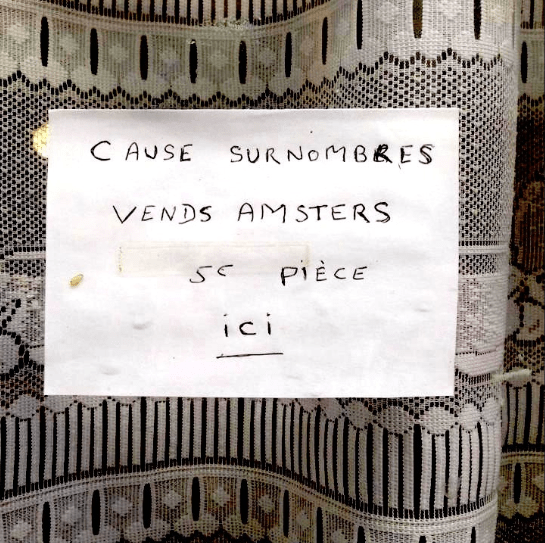 CAUSE SURNOMBRES
VENDS AMSTERS
5€ PIÈCE
ici